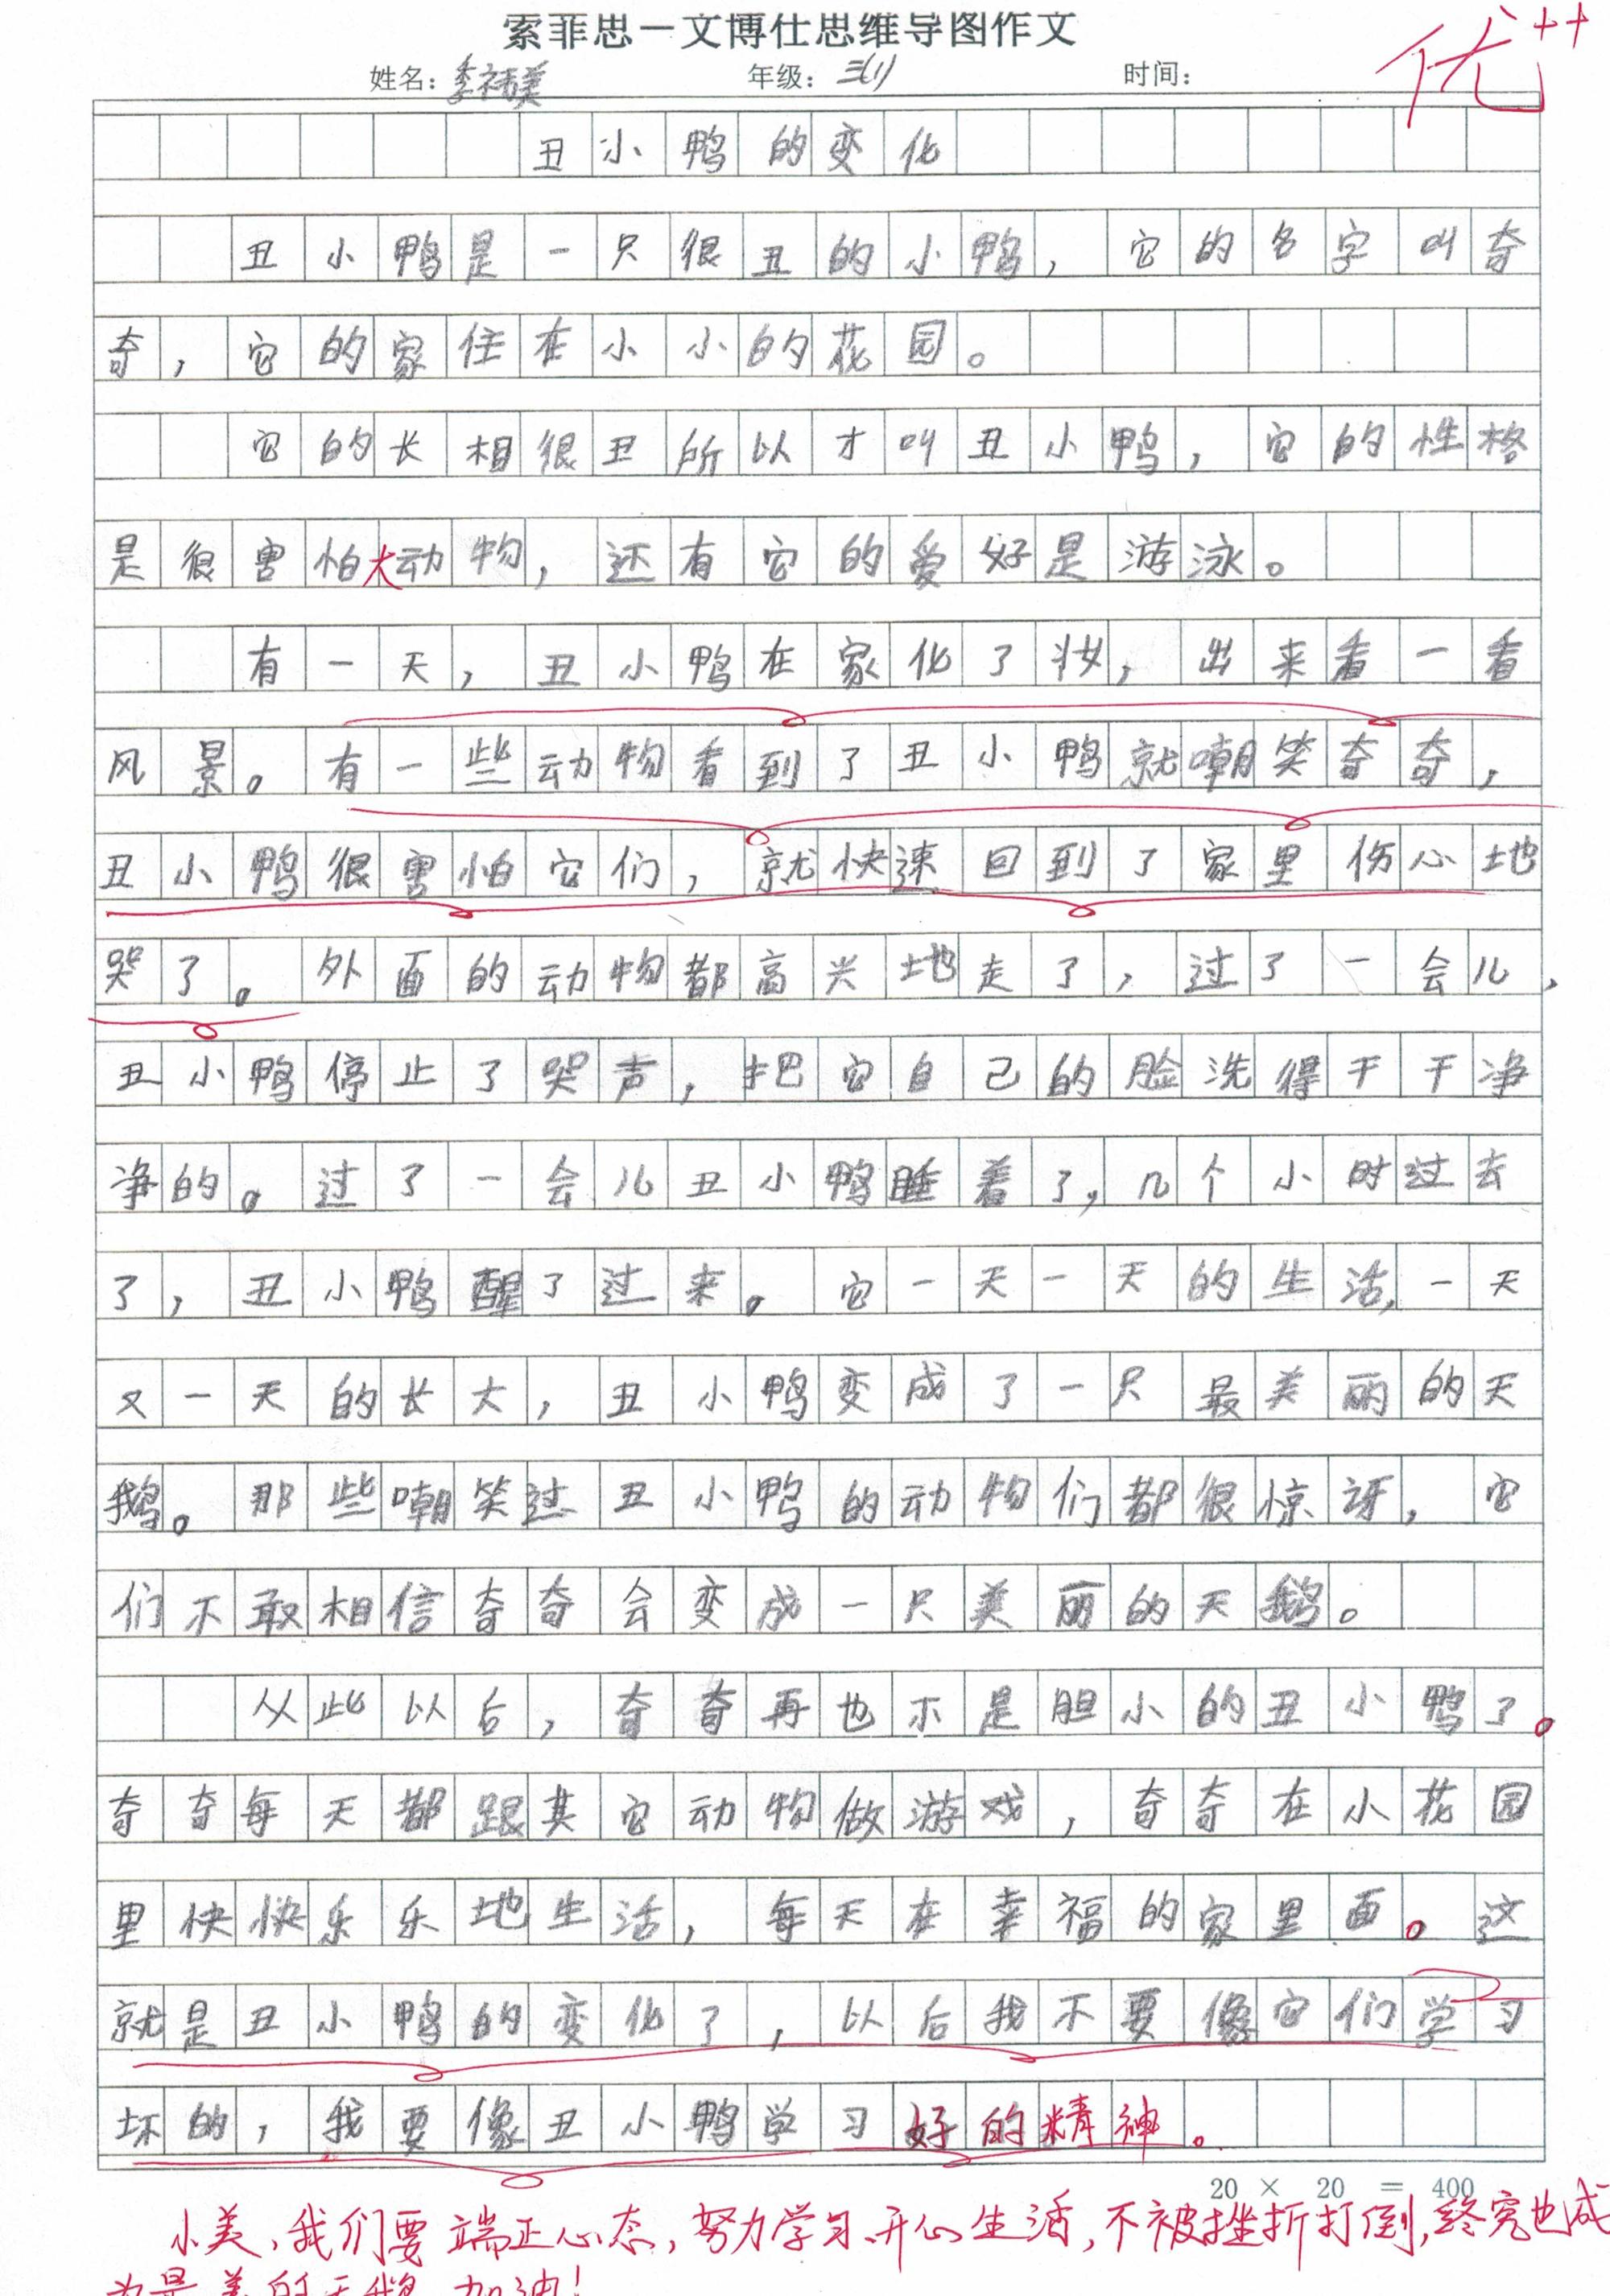 索菲思－文博仕思维导图作文
优++
姓名：季禧美 年级：三(1) 时间：
丑小鸭的变化
丑小鸭是一只很丑的小鸭，它的名字叫奇
奇，它的家住在小小的花园。
它的长相很丑所以才叫丑小鸭，它的性格
是很害怕大动物，还有它的爱好是游泳。
有一天，丑小鸭在家化了妆，出来看一看
风景。有一些动物看到了丑小鸭就嘲笑奇奇，
丑小鸭很害怕它们，就快速回到了家里伤心地
哭了。外面的动物都高兴地走了，过了一会儿，
丑小鸭停止了哭声，把它自己的脸洗得干干净
净的。过了一会儿丑小鸭睡着了，几个小时过去
了，丑小鸭醒了过来。它一天一天的生活，一天
又一天的长大，丑小鸭变成了一只最美丽的天
鹅。那些嘲笑过丑小鸭的动物们都很惊讶，它
们不敢相信奇奇会变成一只美丽的天鹅。
从此以后，奇奇再也不是胆小的丑小鸭了。
奇奇每天都跟其它动物做游戏，奇奇在小花园
里快快乐乐地生活，每天在幸福的家里面。这
就是丑小鸭的变化了，以后我不要像它们学习
坏的，我要像丑小鸭学习好的精神。
20 × 20 = 400
小美，我们要端正心态，努力学习、开心生活，不被挫折打倒，终究也成
为最美的天鹅，加油！